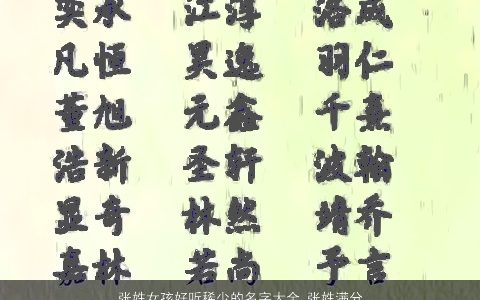 奕承 江淳 洛成
凡恒 昊逸 羽仁
董旭 元鑫 千熹
浩新 圣轩 波翰
显奇 林然 靖乔
嘉林 若尚 于言
张姓女孩好听稀少的名字大全 张姓满分